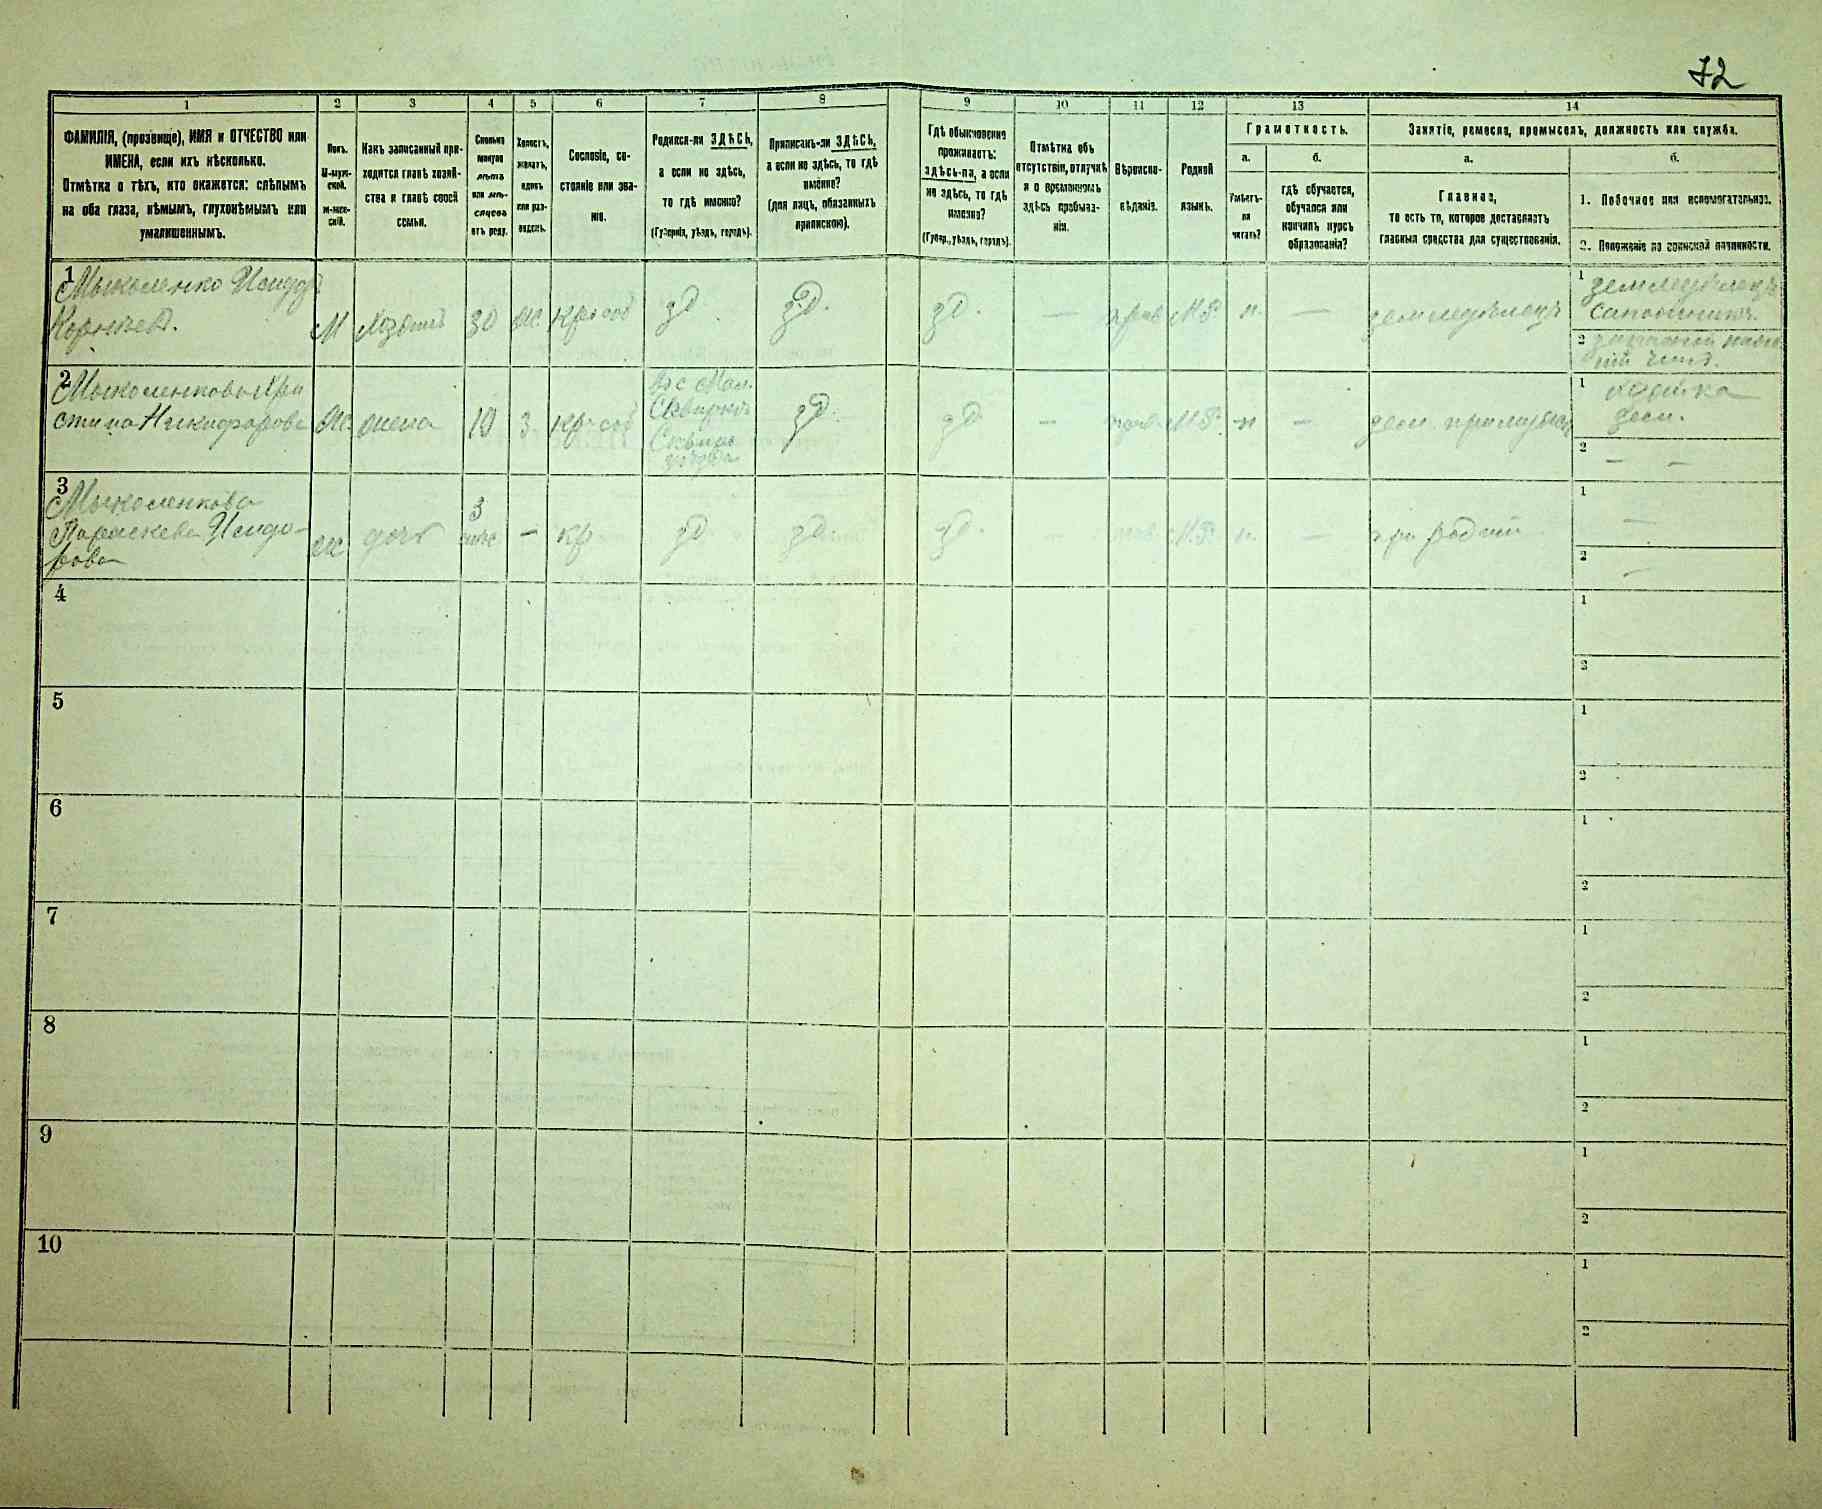 72
1 2 3 4 5 6 7 8 9 10 11 12 13 14
ФАМИЛІЯ, (прозвище), ИМЯ и ОТЧЕСТВО или
ИМЕНА, если ихъ нѣсколько.
Отмѣтка о тѣхъ, кто окажется: слѣпымъ
на оба глаза, нѣмымъ, глухонѣмымъ или
умалишеннымъ.
Полъ.
М-муж-
ской.
ж-жен-
скій.
Какъ записанный при-
ходится главѣ хозяй-
ства и главѣ своей
семьи.
Сколько
минуло
лѣтъ
или мѣ-
сяцевъ
отъ роду.
Холостъ,
женатъ,
вдовъ
или раз-
веденъ.
Сословіе, со-
стояніе или зва-
ніе.
Родился-ли ЗДѢСЬ,
а если не здѣсь,
то гдѣ именно?
(Губернія, уѣздъ, городъ).
Приписанъ-ли ЗДѢСЬ,
а если не здѣсь, то гдѣ
именно?
(для лицъ, обязанныхъ
припискою).
Гдѣ обыкновенно
проживаетъ:
здѣсь-ли, а если
не здѣсь, то гдѣ
именно?
(Губер., уѣздъ, городъ).
Отмѣтка объ
отсутствіи, отлучкѣ
и о временномъ
здѣсь пребыва-
ніи.
Вѣроиспо-
вѣданіе.
Родной
языкъ.
Грамотность.
а.
Умѣетъ-
ли
читать?
б.
гдѣ обучается,
обучался или
кончилъ курсъ
образованія?
Занятіе, ремесло, промыселъ, должность или служба.
а.
Главное,
то есть то, которое доставляетъ
главныя средства для существованія.
б.
1. Побочное или вспомогательное.
2. Положеніе по воинской повинности.
1
Мыколенко Исидоръ
Корнѣевъ.
М Хозяинъ 30 ж. кр. соб зд зд. зд. — прав М.Р. н. — земледѣлецъ
1 земледѣлецъ
сапожникъ.
2
2
Мыколенкова Хри
стина Никифорова
ж жена 19 з. кр. соб
Сквирк.
зд. зд — прав М.Р. н —
1 хозяйка
2 — —
3
Мыколенкова
Параскева Исидо-
рова
ж дочь 3 мѣс — кр зд зд. зд. — прав. М.Р. н. — при родит
1 —
2 —
4 1
2
5 1
2
6 1
2
7 1
2
8 1
2
9 1
2
10 1
2